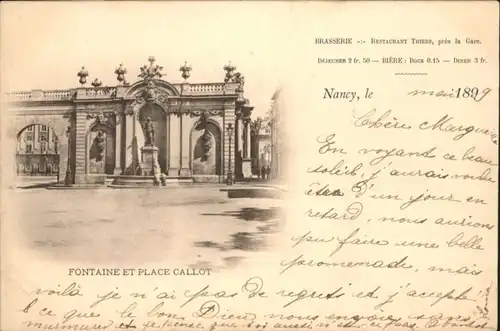 BRASSERIE -:- RESTAURANT THIERS, près la Gare.
DÉJEUNER 2 fr. 50 — BIÈRE : BOCK 0.15 — DINER 3 fr.
Nancy, le mai 1899
Chère Marguerite
En voyant ce beau
soleil, j'aurais voulu
être d'un jour en
retard, nous aurions
pu faire une belle
promenade, mais
FONTAINE ET PLACE CALLOT
voilà je n'ai pas de regrets et j'accepte
ce que le bon Dieu nous envoie sans
murmure et je pense que toi aussi